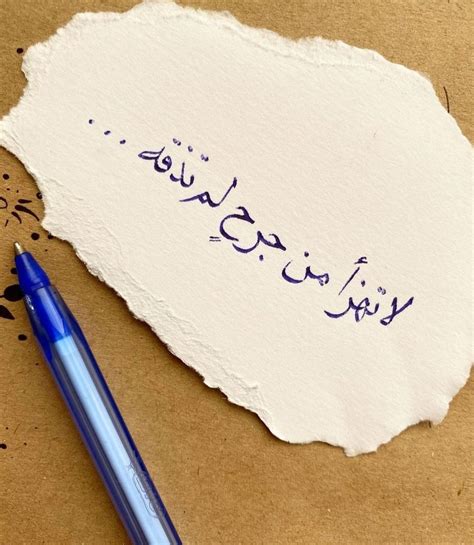 لا تهزأ من جرحٍ لم تذقه ...